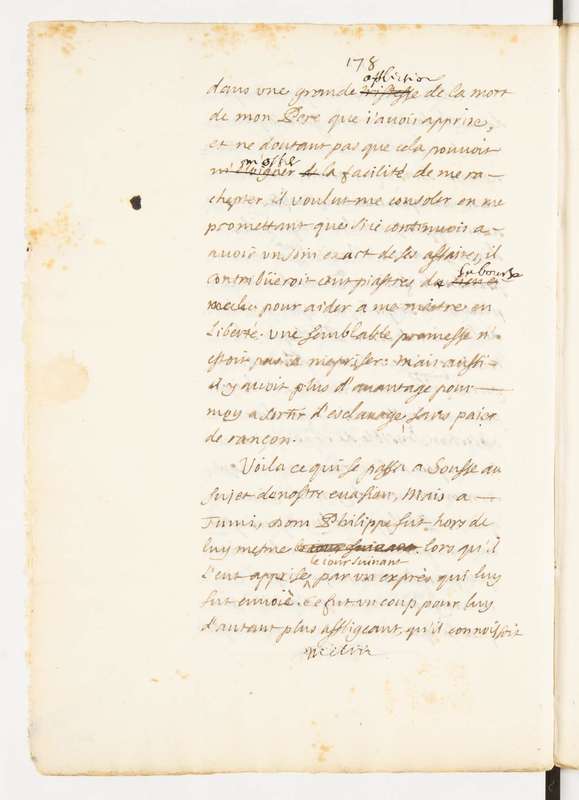 178
affliction
dans une grande tristesse de la mort
de mon Pere que i'auois apprise,
et ne doutant pas que cela pouuoit
m'oste
m' la facilité de me ra-
chepter, il voulut me consoler en me
promettant que si ie continuois a
auoir un soin exact de ses affaires, il
sa bourse
contribüeroit cent piastres de
pour aider a me mettre en
Liberté. Une semblable promesse n'
estoit pas a mepriser: mais aussi
il y auoit plus d'auantage pour
moy a sortir d'esclauage sans paier
de rançon.
Voila ce qui se passa a Sousse au
sujet de nostre euasion, Mais a
Tunis, Dom Philippe fut hors de
luy mesme le iour suiuant lors qu'il
le iour suiuant
l'eut apprise, par un exprès qui luy
fut enuoié. Ce fut un coup pour luy
d'autant plus affligeant, qu'il connoissoit